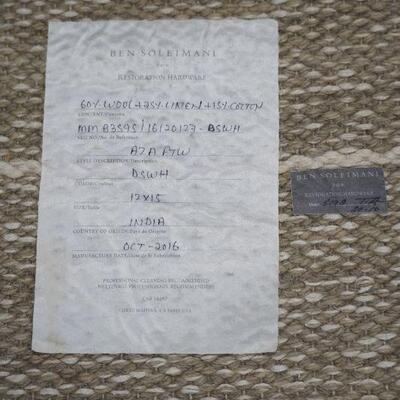 BEN SOLEIMANI
FOR
RESTORATION HARDWARE
60% WOOL + 25% LINEN + 15% COTTON
CONTENT/Contenu
MM 83595/16120127 - BSWH
SKU NO/No. de Référence
AZA FTW
STYLE DESCRIPTION/Description
BSWH
COLOR/Couleur
12X15
SIZE/Taille
INDIA
COUNTRY OF ORIGIN/Pays de Origine
OCT - 2016
MANUFACTURE DATE/Date de la Fabrication
PROFESSIONAL CLEANING RECOMMENDED
NETTOYAGE PROFESSIONNEL RECOMMENDER
CORTE MADERA, CA 94925 USA
BEN SOLEIMANI
FOR
RESTORATION HARDWARE